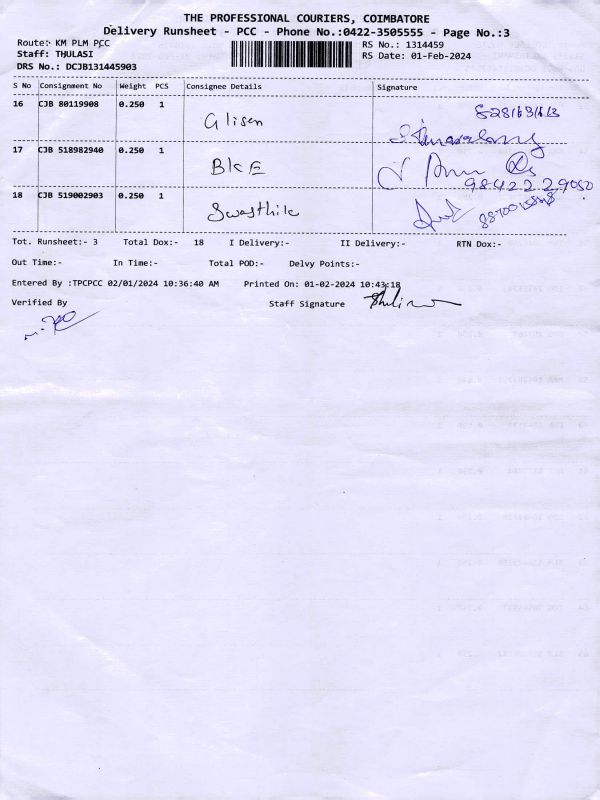 THE PROFESSIONAL COURIERS, COIMBATORE
Delivery Runsheet - PCC - Phone No.:0422-3505555 - Page No.:3
Route:- KM PLM PCC
RS No.: 1314459
Staff: THULASI
RS Date: 01-Feb-2024
DRS No.: DCJB131445903
S No Consignment No Weight PCS Consignee Details Signature
16 CJB 80119908 0.250 1 Glisen
17 CJB 518982940 0.250 1 BKE
98422 29050
18 CJB 519002903 0.250 1 Swasthik
Tot. Runsheet:- 3 Total Dox:- 18 I Delivery:- II Delivery:- RTN Dox:-
Out Time:- In Time:- Total POD:- Delvy Points:-
Entered By :TPCPCC 02/01/2024 10:36:40 AM Printed On: 01-02-2024 10:43:18
Verified By Staff Signature